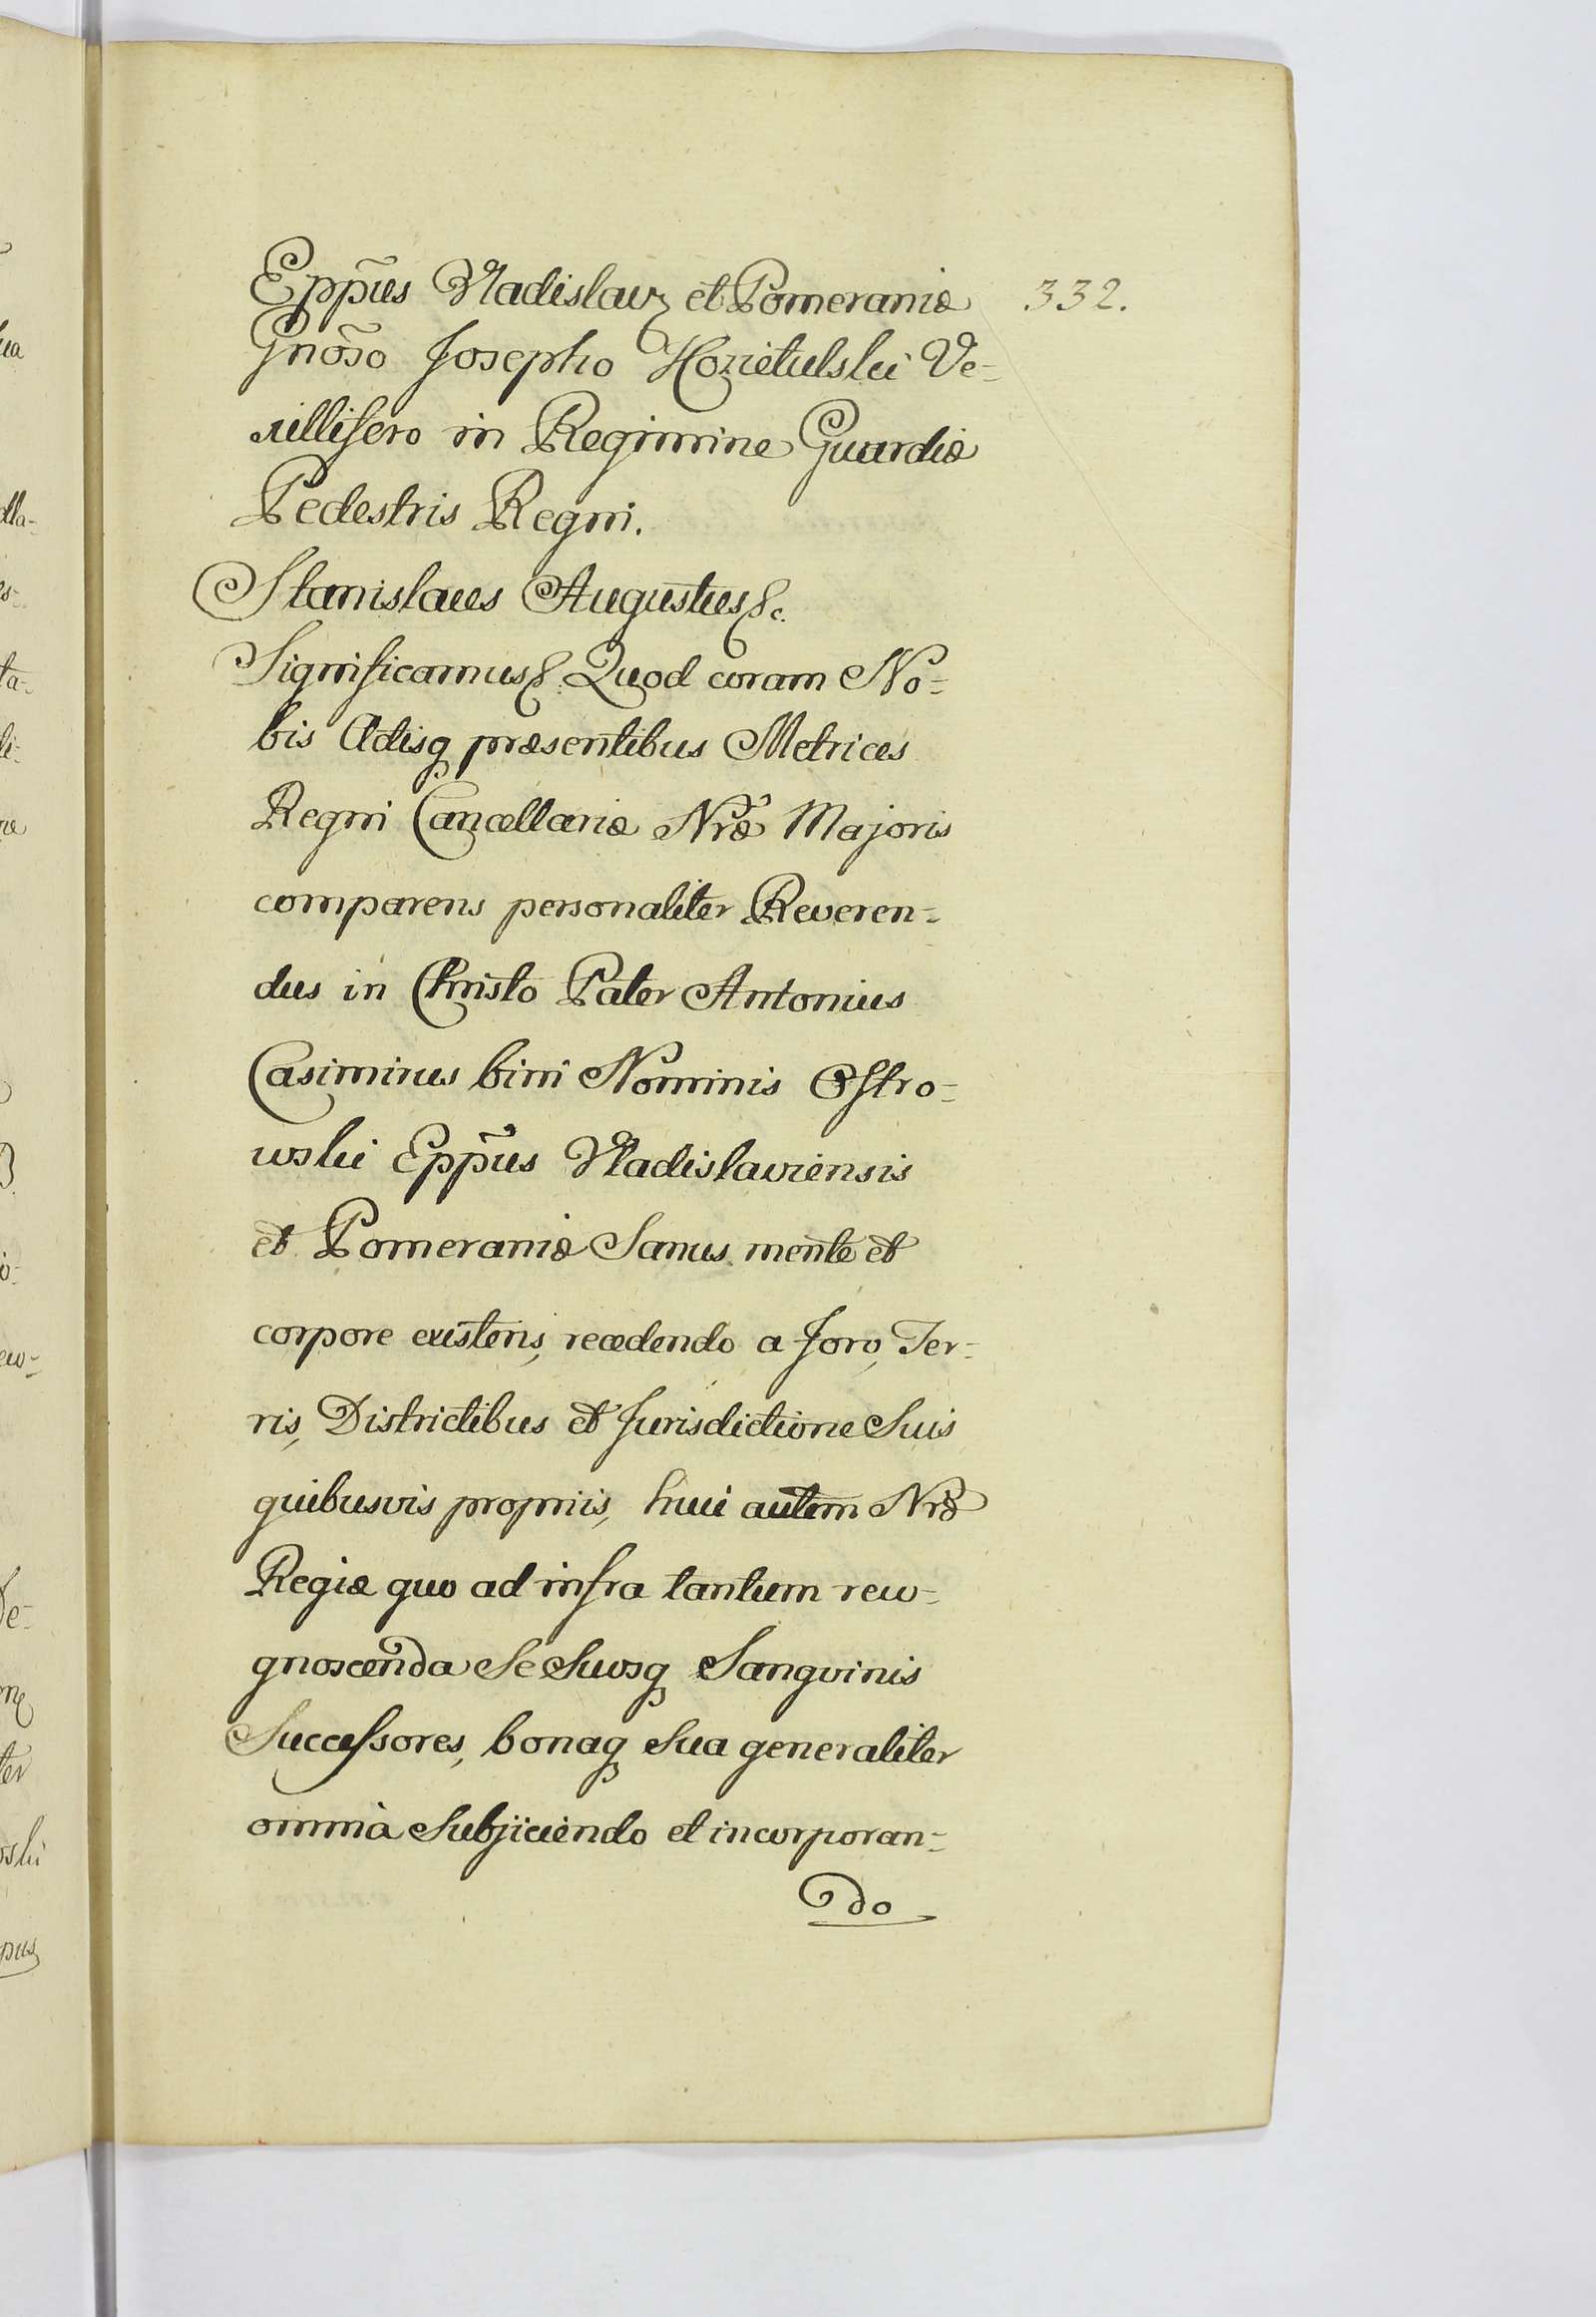 332.
Eppũs Vladislav et Pomeraniæ
Gnõso Josepho Kozietulski Ve-
xillifero in Regimine Guardiæ
Pedestris Regni.
Stanislaus Augustus &c.
Significamus & Quod coram No=
bis Actisq præsentibus Metrices
Regni Cancellariæ Nræ Majoris
comparens personaliter Reveren=
dus in Christo Pater Antonius
Casimirus bini Nominis Ostro=
wski Eppũs Vladislaviensis
et Pomeraniæ Sanus mente et
corpore existens, recedendo a Foro, Ter=
ris, Districtibus et Jurisdictione Suis
quibusvis propriis, huic autem Nræ
Regiæ quo ad infra tantum reco=
gnoscenda Se Suosq Sangvinis
Successores, bonaq sua generaliter
omnia Subjiciendo et incorporan=
do